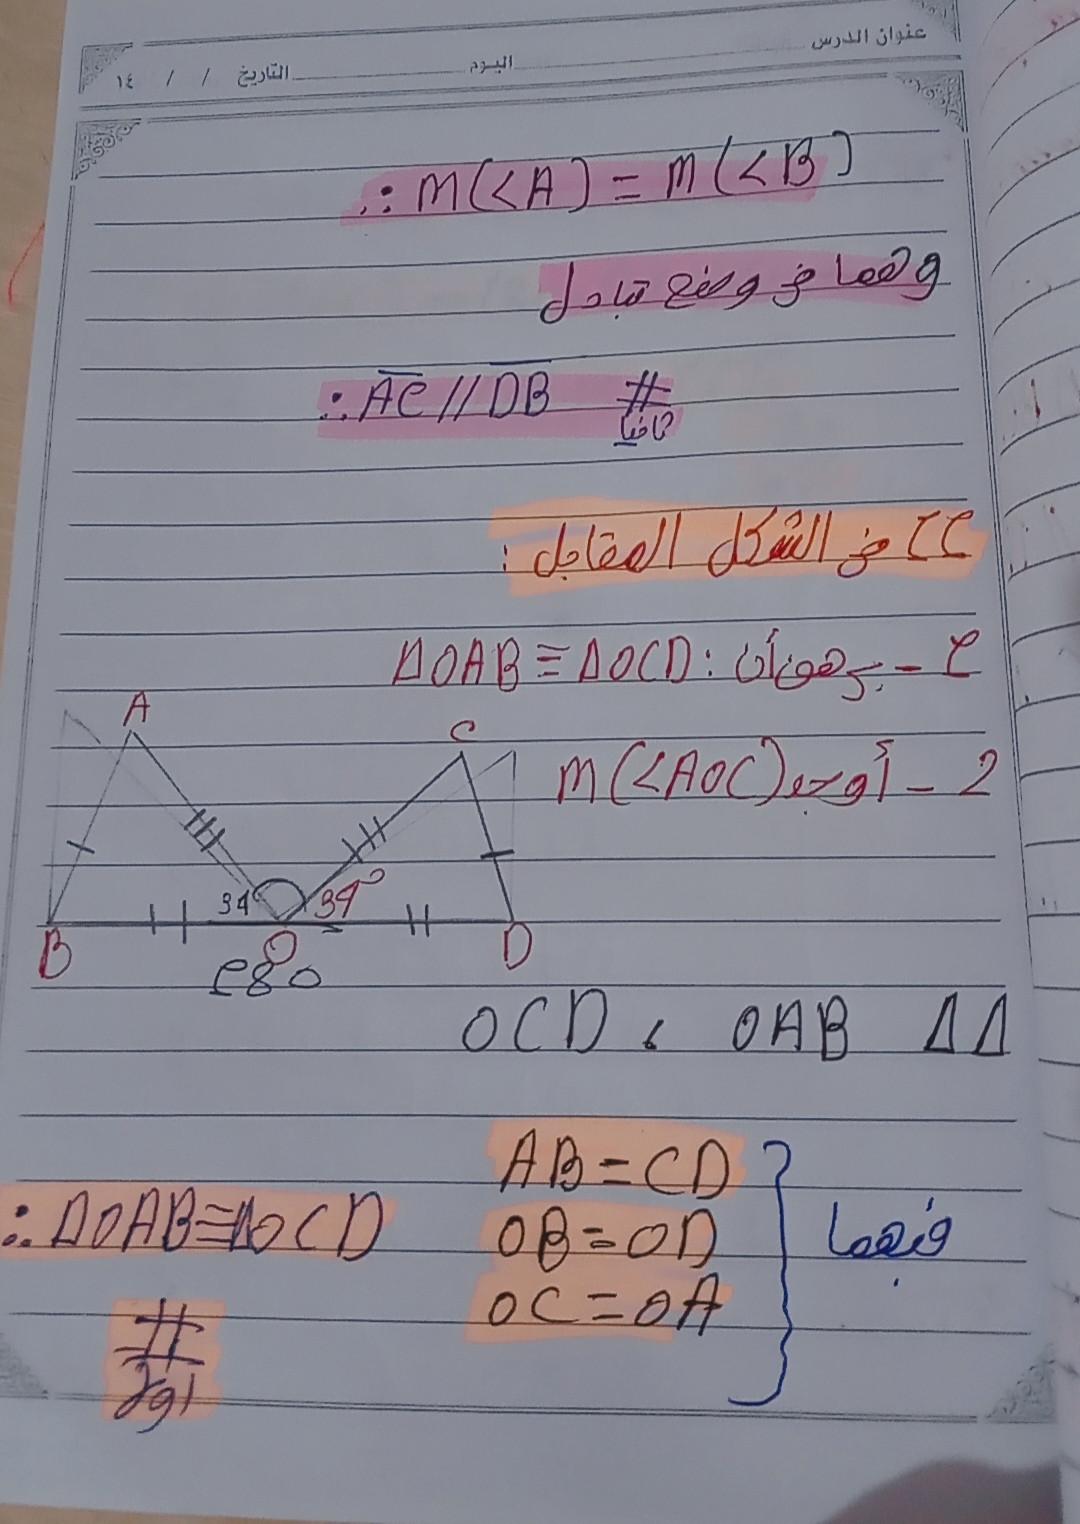 عنوان الدرس
اليوم التاريخ / / ١٤
∴ m(<A) = m(<B)
وهما في وضع تبادل
∴ AC // DB #
ثانيا
في الشكل المقابل :
برهن أن : ΔOAB ≡ ΔOCD
2 - أوجد m(<AOC)
A
C
34
39°
B
O
D
ΔΔ OAB ، OCD
AB = CD
فيهما
OB = OD
∴ ΔOAB ≡ ΔOCD
OC = OA
#
اولا